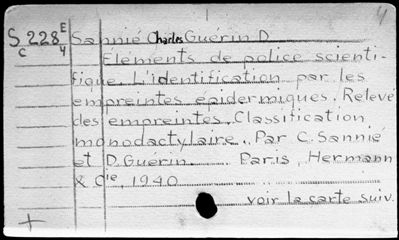 4
S 228 E Sannié Charles Guérin D
C 4
Elements de police scienti-
fique. L'identification par les
empreintes epidermiques. Relevé
des empreintes. Classification
monodactylaire.. Par C. Sannié
et D. Guérin ..... Paris, Hermann
& Cie, 1940
voir la carte suiv.